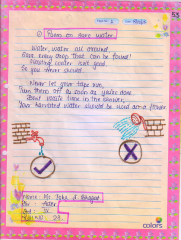 53
Poem on save water
Water, water all around,
Save every drop that can be found!
Wasting water isn't good,
So you never should.
Never let your taps run,
Turn them off as soon as you're done.
Don't waste it in the shower,
Your wasted water should be used on a flower.
Name
Mr. John
colors